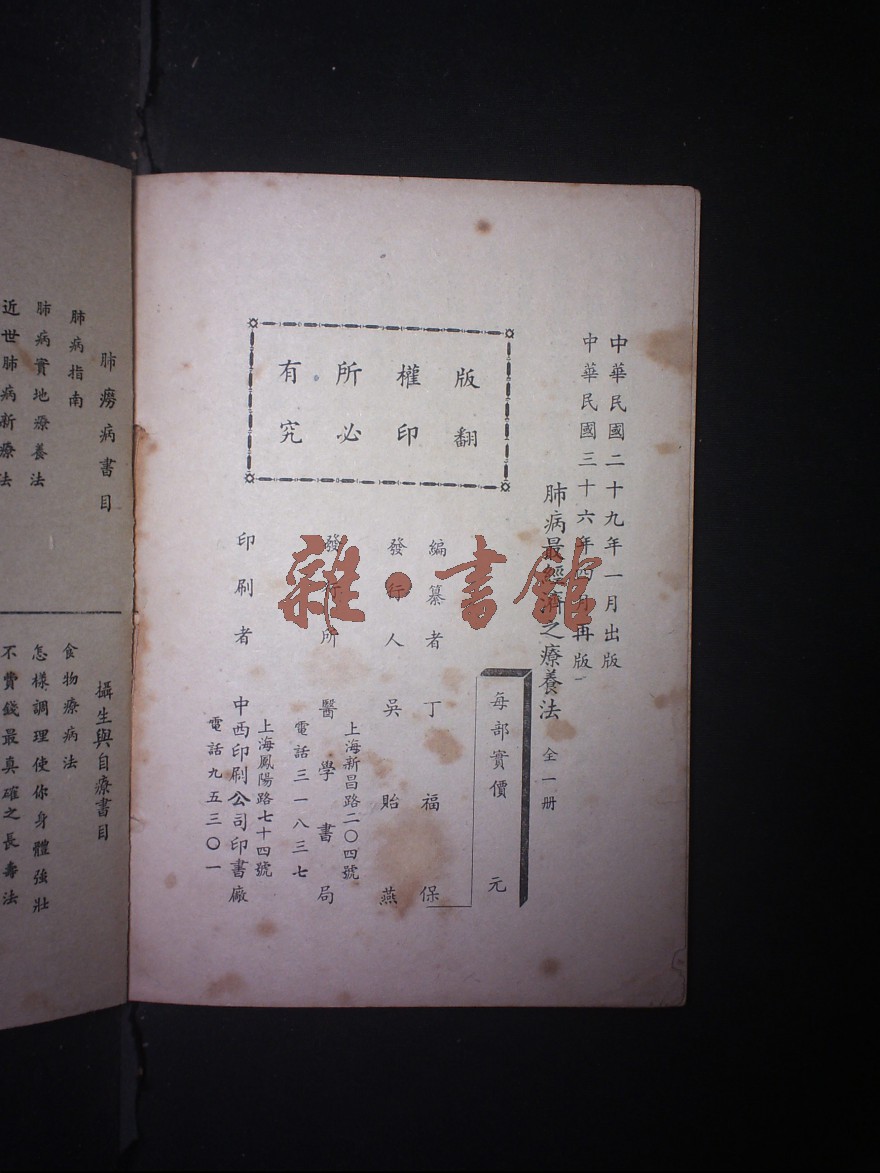 中華民國二十九年一月出版
中華民國三十六年四月再版
肺病最經濟之療養法 全一册
每部實價 元
版權所有
翻印必究
編纂者 丁福保
發行人 吳貽燕
發行所 醫學書局
上海新昌路二〇四號
電話三一八三七
印刷者 中西印刷公司印書廠
上海鳳陽路七十四號
電話九五三〇一
雜·書館
肺癆病書目
肺病指南
肺病實地療養法
近世肺病新療法
攝生與自療書目
食物療病法
怎樣調理使你身體強壯
不費錢最真確之長壽法